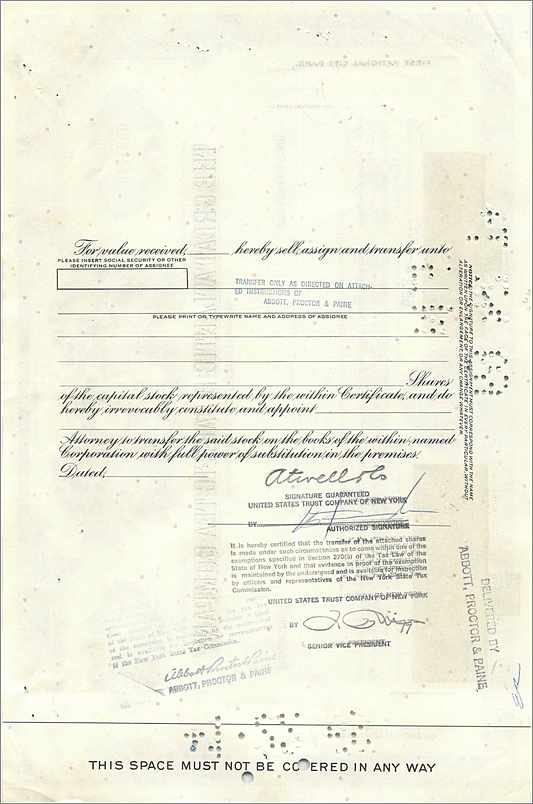 FIRST NATIONAL CITY BANK,
For value received, hereby sell, assign and transfer unto
PLEASE INSERT SOCIAL SECURITY OR OTHER
IDENTIFYING NUMBER OF ASSIGNEE
TRANSFER ONLY AS DIRECTED ON ATTACH-
ED INSTRUCTIONS OF
ABBOTT, PROCTOR & PAINE
PLEASE PRINT OR TYPEWRITE NAME AND ADDRESS OF ASSIGNEE
Shares
of the capital stock represented by the within Certificate, and do
hereby irrevocably constitute and appoint
Attorney to transfer the said stock on the books of the within named
Corporation with full power of substitution in the premises.
Dated,
Atwell & Co
SIGNATURE GUARANTEED
UNITED STATES TRUST COMPANY OF NEW YORK
BY
AUTHORIZED SIGNATURE
It is hereby certified that the transfer of the attached shares
is made under such circumstances as to come within one of the
exemptions specified in Section 270(5) of the Tax Law of the
State of New York and that evidence in proof of the exemption
is maintained by the undersigned and is available for inspection
by officers and representatives of the New York State Tax
Commission.
UNITED STATES TRUST COMPANY OF NEW YORK
BY
SENIOR VICE PRESIDENT
of the New York State Tax Commission.
Abbott Proctor & Paine
ABBOTT, PROCTOR & PAINE
NOTICE: THE SIGNATURE TO THIS ASSIGNMENT MUST CORRESPOND WITH THE NAME
AS WRITTEN UPON THE FACE OF THE CERTIFICATE IN EVERY PARTICULAR, WITHOUT
ALTERATION OR ENLARGEMENT OR ANY CHANGE WHATEVER.
DELIVERED BY
ABBOTT, PROCTOR & PAINE
THIS SPACE MUST NOT BE COVERED IN ANY WAY